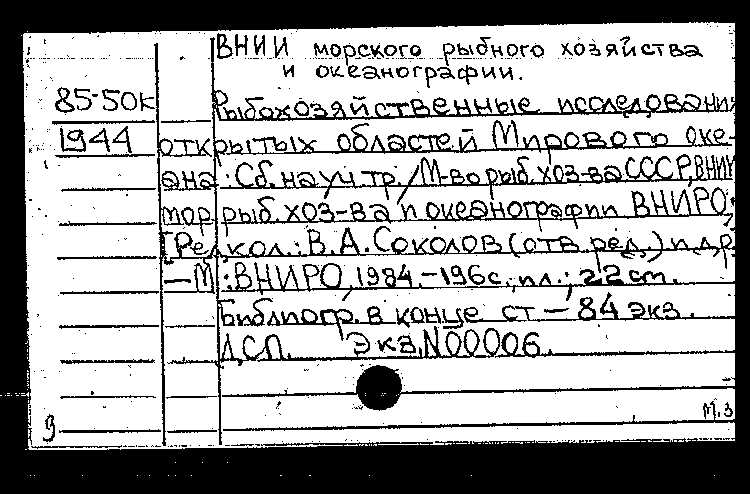 ВНИИ морского рыбного хозяйства
и океанографии.
85-50к Рыбохозяйственные исследования
1944 открытых областей Мирового оке-
ана: Сб. науч. тр./М-во рыб. хоз-ва СССР, ВНИИ
мор. рыб. хоз-ва и океанографии ВНИРО;
[Редкол.: В.А. Соколов (отв. ред.) и др.
—М.: ВНИРО, 1984.-196с.; ил.; 22 см.
Библиогр. в конце ст — 84 экз.
ДСП. Экз. N00006.
М.З
9